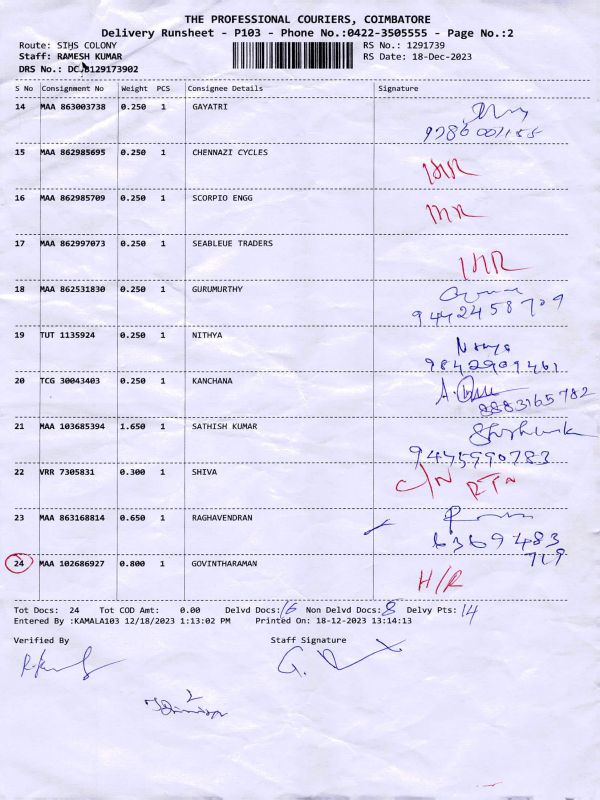 THE PROFESSIONAL COURIERS, COIMBATORE
Delivery Runsheet - P103 - Phone No.:0422-3505555 - Page No.:2
Route: SIHS COLONY RS No.: 1291739
Staff: RAMESH KUMAR RS Date: 18-Dec-2023
DRS No.: DC.B129173902
S No Consignment No Weight PCS Consignee Details Signature
14 MAA 863003738 0.250 1 GAYATRI
15 MAA 862985695 0.250 1 CHENNAZI CYCLES
16 MAA 862985709 0.250 1 SCORPIO ENGG
17 MAA 862997073 0.250 1 SEABLEUE TRADERS
18 MAA 862531830 0.250 1 GURUMURTHY
9442458709
19 TUT 1135924 0.250 1 NITHYA
9842909461
20 TCG 30043403 0.250 1 KANCHANA
8883165782
21 MAA 103685394 1.650 1 SATHISH KUMAR
9445990783
22 VRR 7305831 0.300 1 SHIVA C/N RTN
23 MAA 863168814 0.650 1 RAGHAVENDRAN
6369483
719
24 MAA 102686927 0.800 1 GOVINTHARAMAN H/R
Tot Docs: 24 Tot COD Amt: 0.00 Delvd Docs: 16 Non Delvd Docs: 8 Delvy Pts: 14
Entered By :KAMALA103 12/18/2023 1:13:02 PM Printed On: 18-12-2023 13:14:13
Verified By Staff Signature